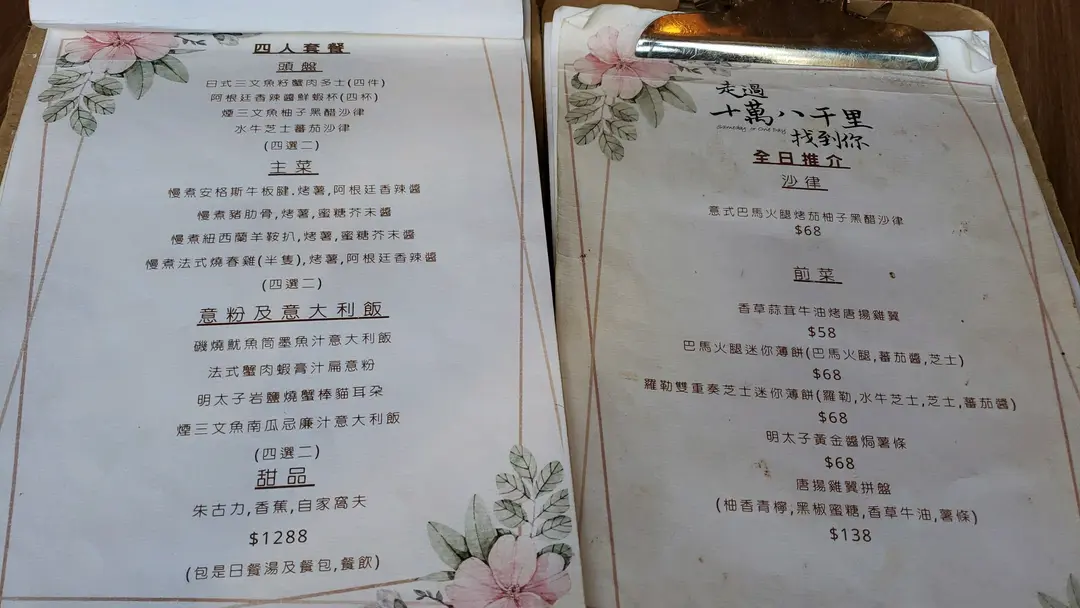 四人套餐
頭盤
日式三文魚籽蟹肉多士(四件)
阿根廷香辣醬鮮蝦杯(四杯)
煙三文魚柚子黑醋沙律
水牛芝士蕃茄沙律
(四選二)
主菜
慢煮安格斯牛板腱,烤薯,阿根廷香辣醬
慢煮豬肋骨,烤薯,蜜糖芥末醬
慢煮紐西蘭羊鞍扒,烤薯,蜜糖芥末醬
慢煮法式燒春雞(半隻),烤薯,阿根廷香辣醬
(四選二)
意粉及意大利飯
磯燒魷魚筒墨魚汁意大利飯
法式蟹肉蝦膏汁扁意粉
明太子岩鹽燒蟹棒貓耳朵
煙三文魚南瓜忌廉汁意大利飯
(四選二)
甜品
朱古力,香蕉,自家窩夫
$1288
(包是日餐湯及餐包,餐飲)
走過
十萬八千里
Someday or One Day
找到你
全日推介
沙律
意式巴馬火腿烤茄柚子黑醋沙律
$68
前菜
香草蒜茸牛油烤唐揚雞翼
$58
巴馬火腿迷你薄餅(巴馬火腿,蕃茄醬,芝士)
$68
羅勒雙重奏芝士迷你薄餅(羅勒,水牛芝士,芝士,蕃茄醬)
$68
明太子黃金醬焗薯條
$68
唐揚雞翼拼盤
(柚香青檸,黑椒蜜糖,香草牛油,薯條)
$138